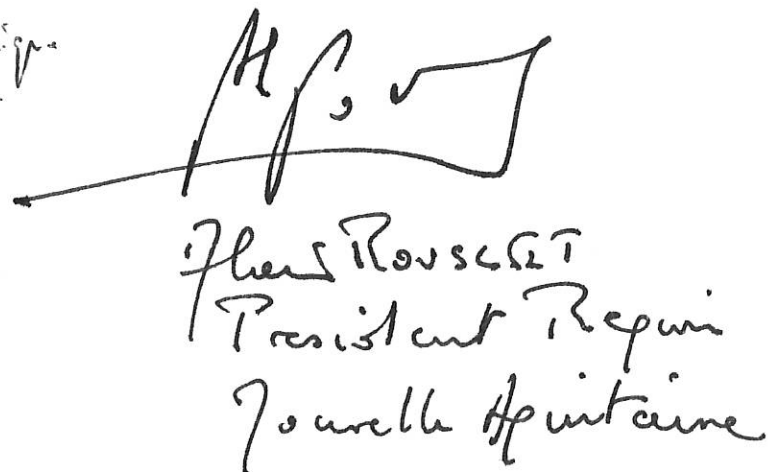 Alain ROUSSET
President Region
Nouvelle Aquitaine